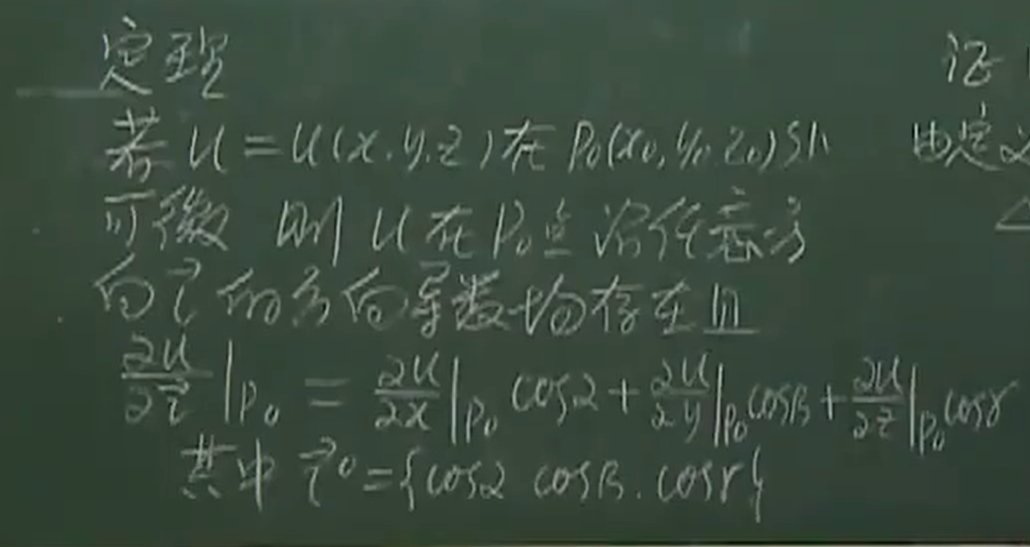 定理
若 u = u(x, y, z) 在 P₀(x₀, y₀, z₀)处
可微 则 u 在 P₀点 沿任意方
向 l⃗ 的方向导数均存在且
∂u/∂l⃗ |P₀ = ∂u/∂x |P₀ cosα + ∂u/∂y |P₀ cosβ + ∂u/∂z |P₀ cosγ
其中 l⃗⁰ = {cosα cosβ, cosγ}
证
由定义